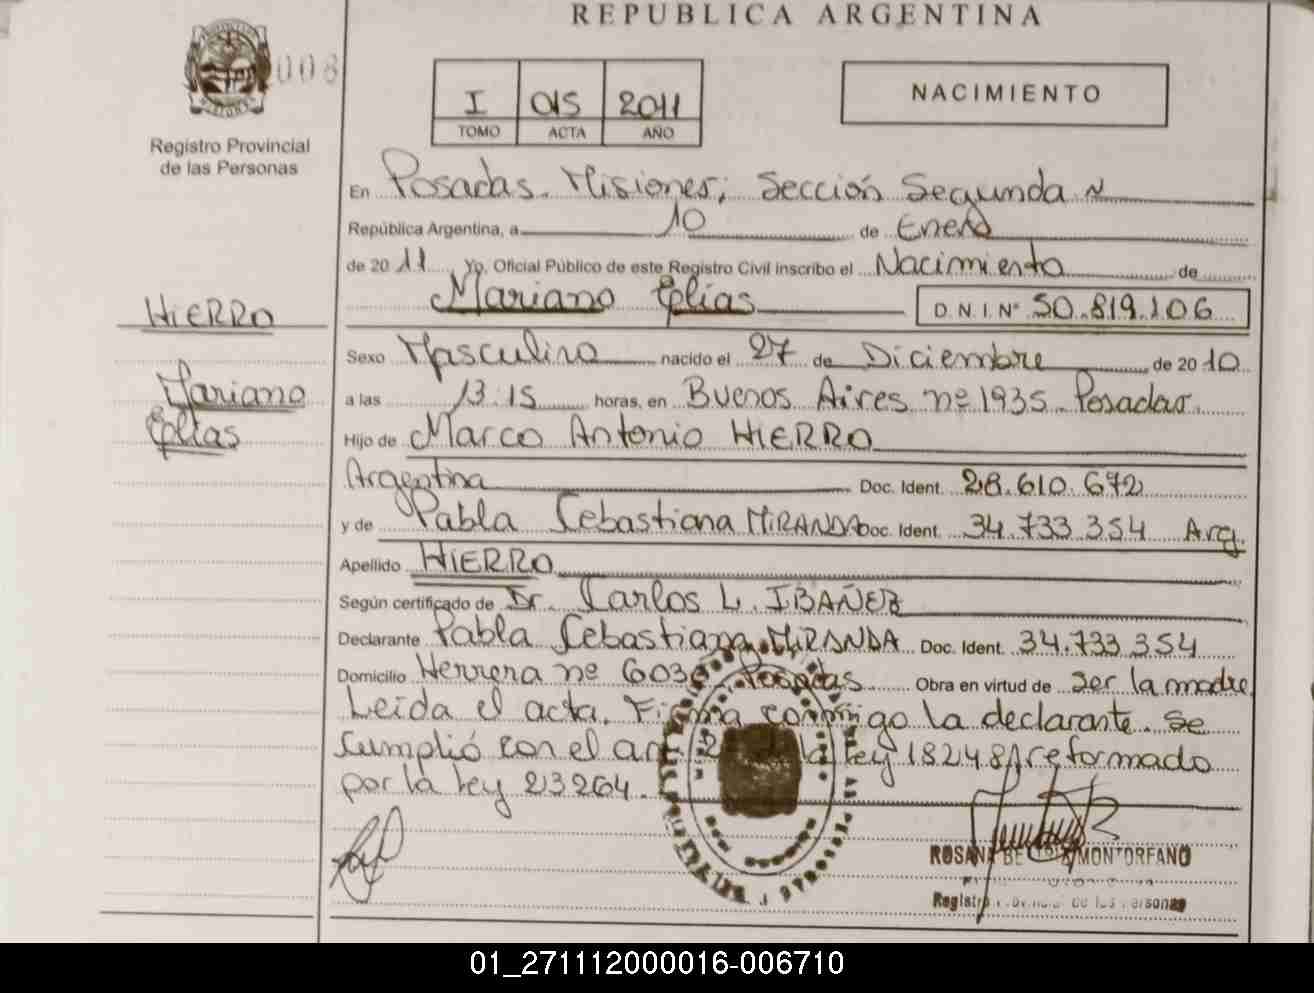 REPUBLICA ARGENTINA
008
Registro Provincial
de las Personas
I 015 2011
TOMO ACTA AÑO
NACIMIENTO
En Posadas. Misiones; Sección Segunda
República Argentina, a 10 de Enero
de 2011 Yo, Oficial Público de este Registro Civil inscribo el Nacimiento de
Mariano Elías D.N.I. Nº 50.819.106
HIERRO
Mariano
Elías
Sexo Masculino nacido el 27 de Diciembre de 2010
a las 13.15 horas, en Buenos Aires nº 1935. Posadas.
Hijo de Marco Antonio HIERRO
Argentina Doc. Ident. 28.610.672
y de Pabla Sebastiana MIRANDA Doc. Ident. 34.733.354 Arg.
Apellido HIERRO
Según certificado de Dr. Carlos L. IBAÑEZ
Declarante Pabla Sebastiana MIRANDA Doc. Ident. 34.733.354
Domicilio Herrera nº 6036 Posadas Obra en virtud de Ser la madre
Leída el acta. Firma conmigo la declarante. Se
Cumplió con el art 2 de la Ley 18248 reformado
por la Ley 23264.
ROSANA MONTORFANO
Registro de las Personas
01_271112000016-006710